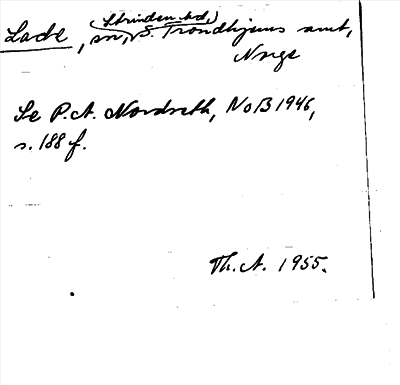 Lade, sn, (Strinden hd,) S. Trondhjems amt,
Norge
Se P.A. Nordseth, NoB 1946,
s. 188 f.
Th.A. 1955.